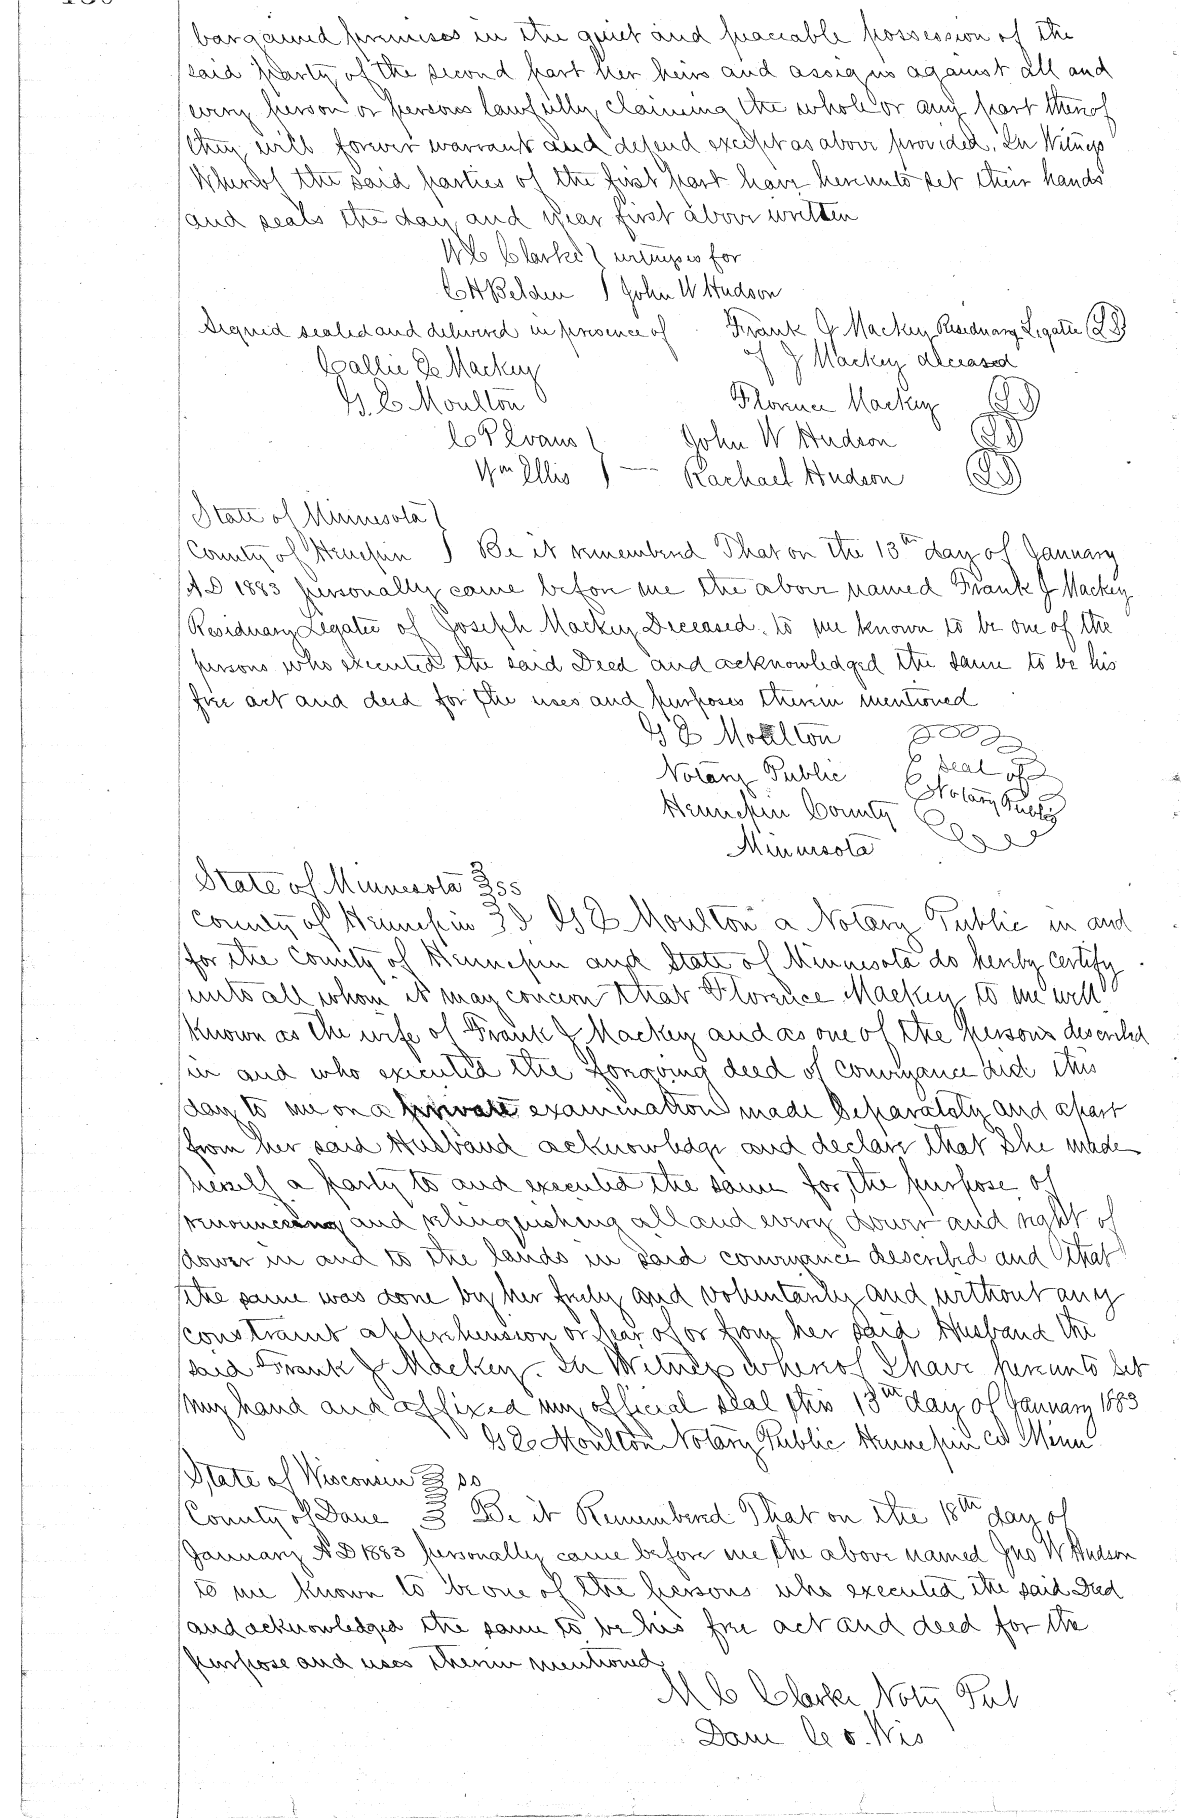 bargained premises in the quiet and peaceable possession of the
said party of the second part her heirs and assigns against all and
every person or persons lawfully claiming the whole or any part thereof
they will forever warrant and defend except as above provided. In Witness
Whereof the said parties of the first part have hereunto set their hands
and seals the day and year first above written
W C Clarke } witnesses for
C H Belden } John W Hudson
Signed sealed and delivered in presence of Frank J Mackey Residuary Legatee LS
of J Mackey deceased
Callie E Mackey
G. E Moulton Florence Mackey LS
C P Evans } John W Hudson LS
Wm Ellis } — Rachael Hudson LS
State of Minnesota }
County of Hennepin } Be it remembered That on the 13th day of January
AD 1883 personally came before me the above named Frank J Mackey
Residuary Legatee of Joseph Mackey Deceased. to me known to be one of the
persons who executed the said Deed and acknowledged the same to be his
free act and deed for the uses and purposes therein mentioned
G E Moulton
Notary Public seal of
Hennepin County Notary Public
Minnesota
State of Minnesota } ss
County of Hennepin } I G E Moulton a Notary Public in and
for the County of Hennepin and State of Minnesota do hereby certify
unto all whom it may concern that Florence Mackey to me well
known as the wife of Frank J Mackey and as one of the persons described
in and who executed the foregoing deed of conveyance did this
day to me on a private examination made Separately and apart
from her said Husband acknowledge and declare that She made
herself a party to and executed the same for the purpose of
renouncing and relinquishing all and every dower and right of
dower in and to the lands in said conveyance described and that
the same was done by her freely and voluntarily and without any
constraint apprehension or fear of or from her said Husband the
said Frank J Mackey. In Witness whereof I have hereunto Set
my hand and affixed my official seal this 13th day of January 1883
G E Moulton Notary Public Hennepin Co Minn
State of Wisconsin } ss
County of Dane } Be it Remembered That on the 18th day of
January AD 1883 personally came before me the above named Jno W Hudson
to me known to be one of the persons who executed the said Deed
and acknowledged the same to be his free act and deed for the
purpose and uses therein mentioned
M C Clarke Noty Pub
Dane Co. Wis